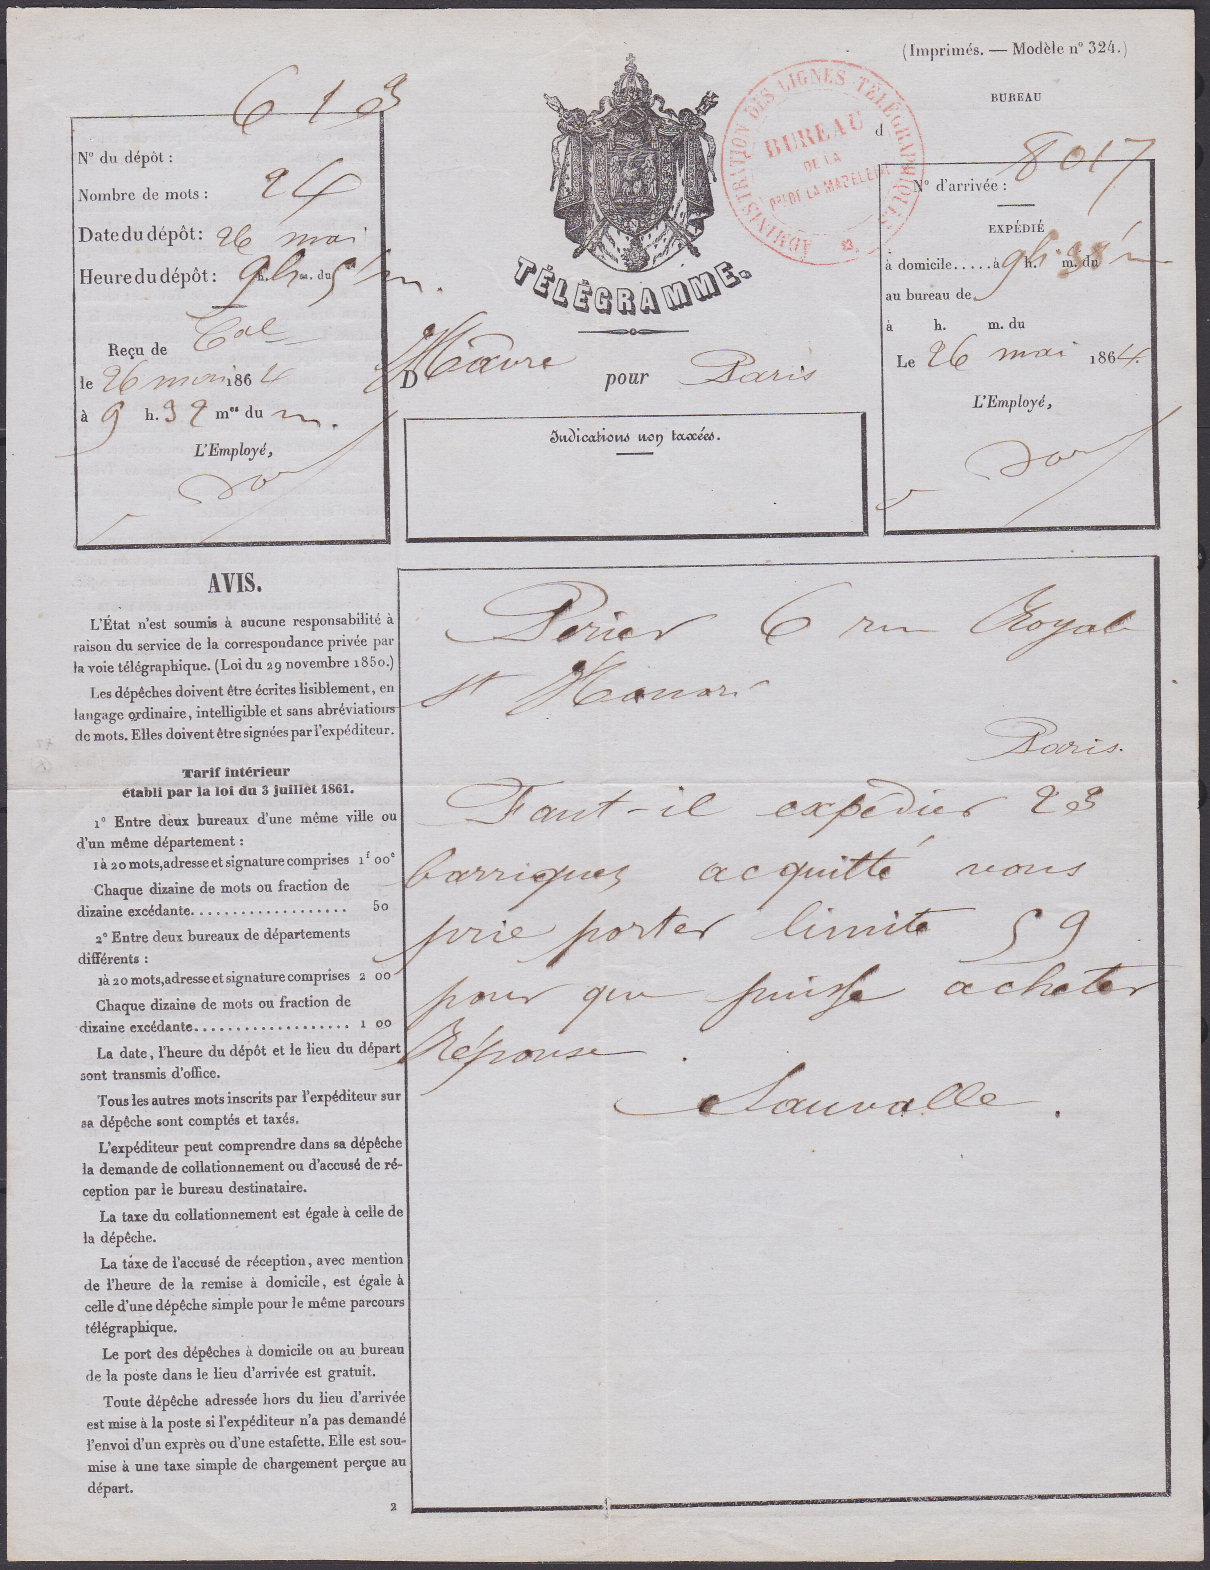 (Imprimés. — Modèle n° 324.)
BUREAU
d
ADMINISTRATION DES LIGNES TÉLÉGRAPHIQUES
BUREAU
DE LA
DE LA MADELEINE
TÉLÉGRAMME.
613
N° du dépôt :
Nombre de mots : 24
Date du dépôt : 26 mai
Heure du dépôt : 9 h. m. du m.
Reçu de
le 26 mai 1864
à 9 h. 32 mes du m.
L'Employé,
8017
N° d'arrivée :
EXPÉDIÉ
à domicile.....à 9 h. 38 m. du m
au bureau de
à h. m. du
Le 26 mai 1864.
L'Employé,
D Havre pour Paris
Indications non taxées.
AVIS.
L'État n'est soumis à aucune responsabilité à
raison du service de la correspondance privée par
la voie télégraphique. (Loi du 29 novembre 1850.)
Les dépêches doivent être écrites lisiblement, en
langage ordinaire, intelligible et sans abréviations
de mots. Elles doivent être signées par l'expéditeur.
Tarif intérieur
établi par la loi du 3 juillet 1861.
1° Entre deux bureaux d'une même ville ou
d'un même département :
1 à 20 mots, adresse et signature comprises 1f 00c
Chaque dizaine de mots ou fraction de
dizaine excédante................... 50
2° Entre deux bureaux de départements
différents :
1 à 20 mots, adresse et signature comprises 2 00
Chaque dizaine de mots ou fraction de
dizaine excédante................... 1 00
La date, l'heure du dépôt et le lieu du départ
sont transmis d'office.
Tous les autres mots inscrits par l'expéditeur sur
sa dépêche sont comptés et taxés.
L'expéditeur peut comprendre dans sa dépêche
la demande de collationnement ou d'accusé de ré-
ception par le bureau destinataire.
La taxe du collationnement est égale à celle de
la dépêche.
La taxe de l'accusé de réception, avec mention
de l'heure de la remise à domicile, est égale à
celle d'une dépêche simple pour le même parcours
télégraphique.
Le port des dépêches à domicile ou au bureau
de la poste dans le lieu d'arrivée est gratuit.
Toute dépêche adressée hors du lieu d'arrivée
est mise à la poste si l'expéditeur n'a pas demandé
l'envoi d'un exprès ou d'une estafette. Elle est sou-
mise à une taxe simple de chargement perçue au
départ.
2
Perier 6 rue Royale
St Honoré
Paris.
Faut-il expédier 23
barriques acquitté vous
prie porter limite 59
pour que puisse acheter
Réponse .
Lauvalle .